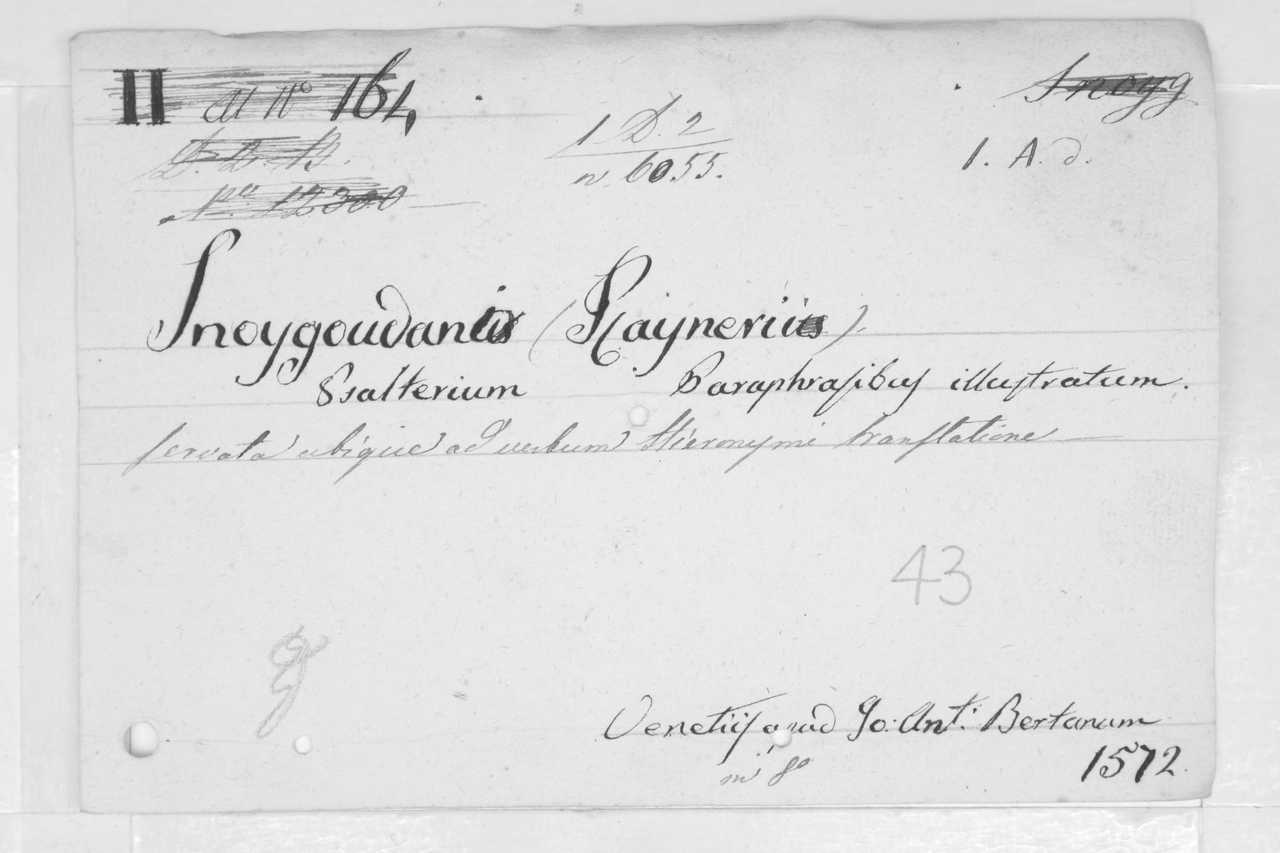 II al N° 164,
Snoyg
1 D. 2
n. 6055.
1. A. d.
N.° 12300
Snoygoudanus (Raynerius)
Psalterium Paraphrasibus illustratum.
servata ubique ad verbum Hieronymi translatione
43
Venetiis apud Jo: Ant: Bertanum
in 8°
1572.